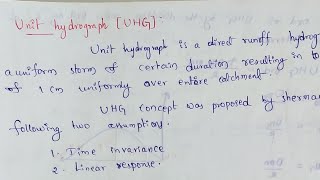 Unit hydrograph [UHG]:-
Unit hydrograph is a direct runoff hydrog
a uniform storm of certain duration resulting in to
of 1 cm uniformly over entire catchment-
UHG concept was proposed by sherman
following two assumption.
1. Time invariance
2. Linear response.